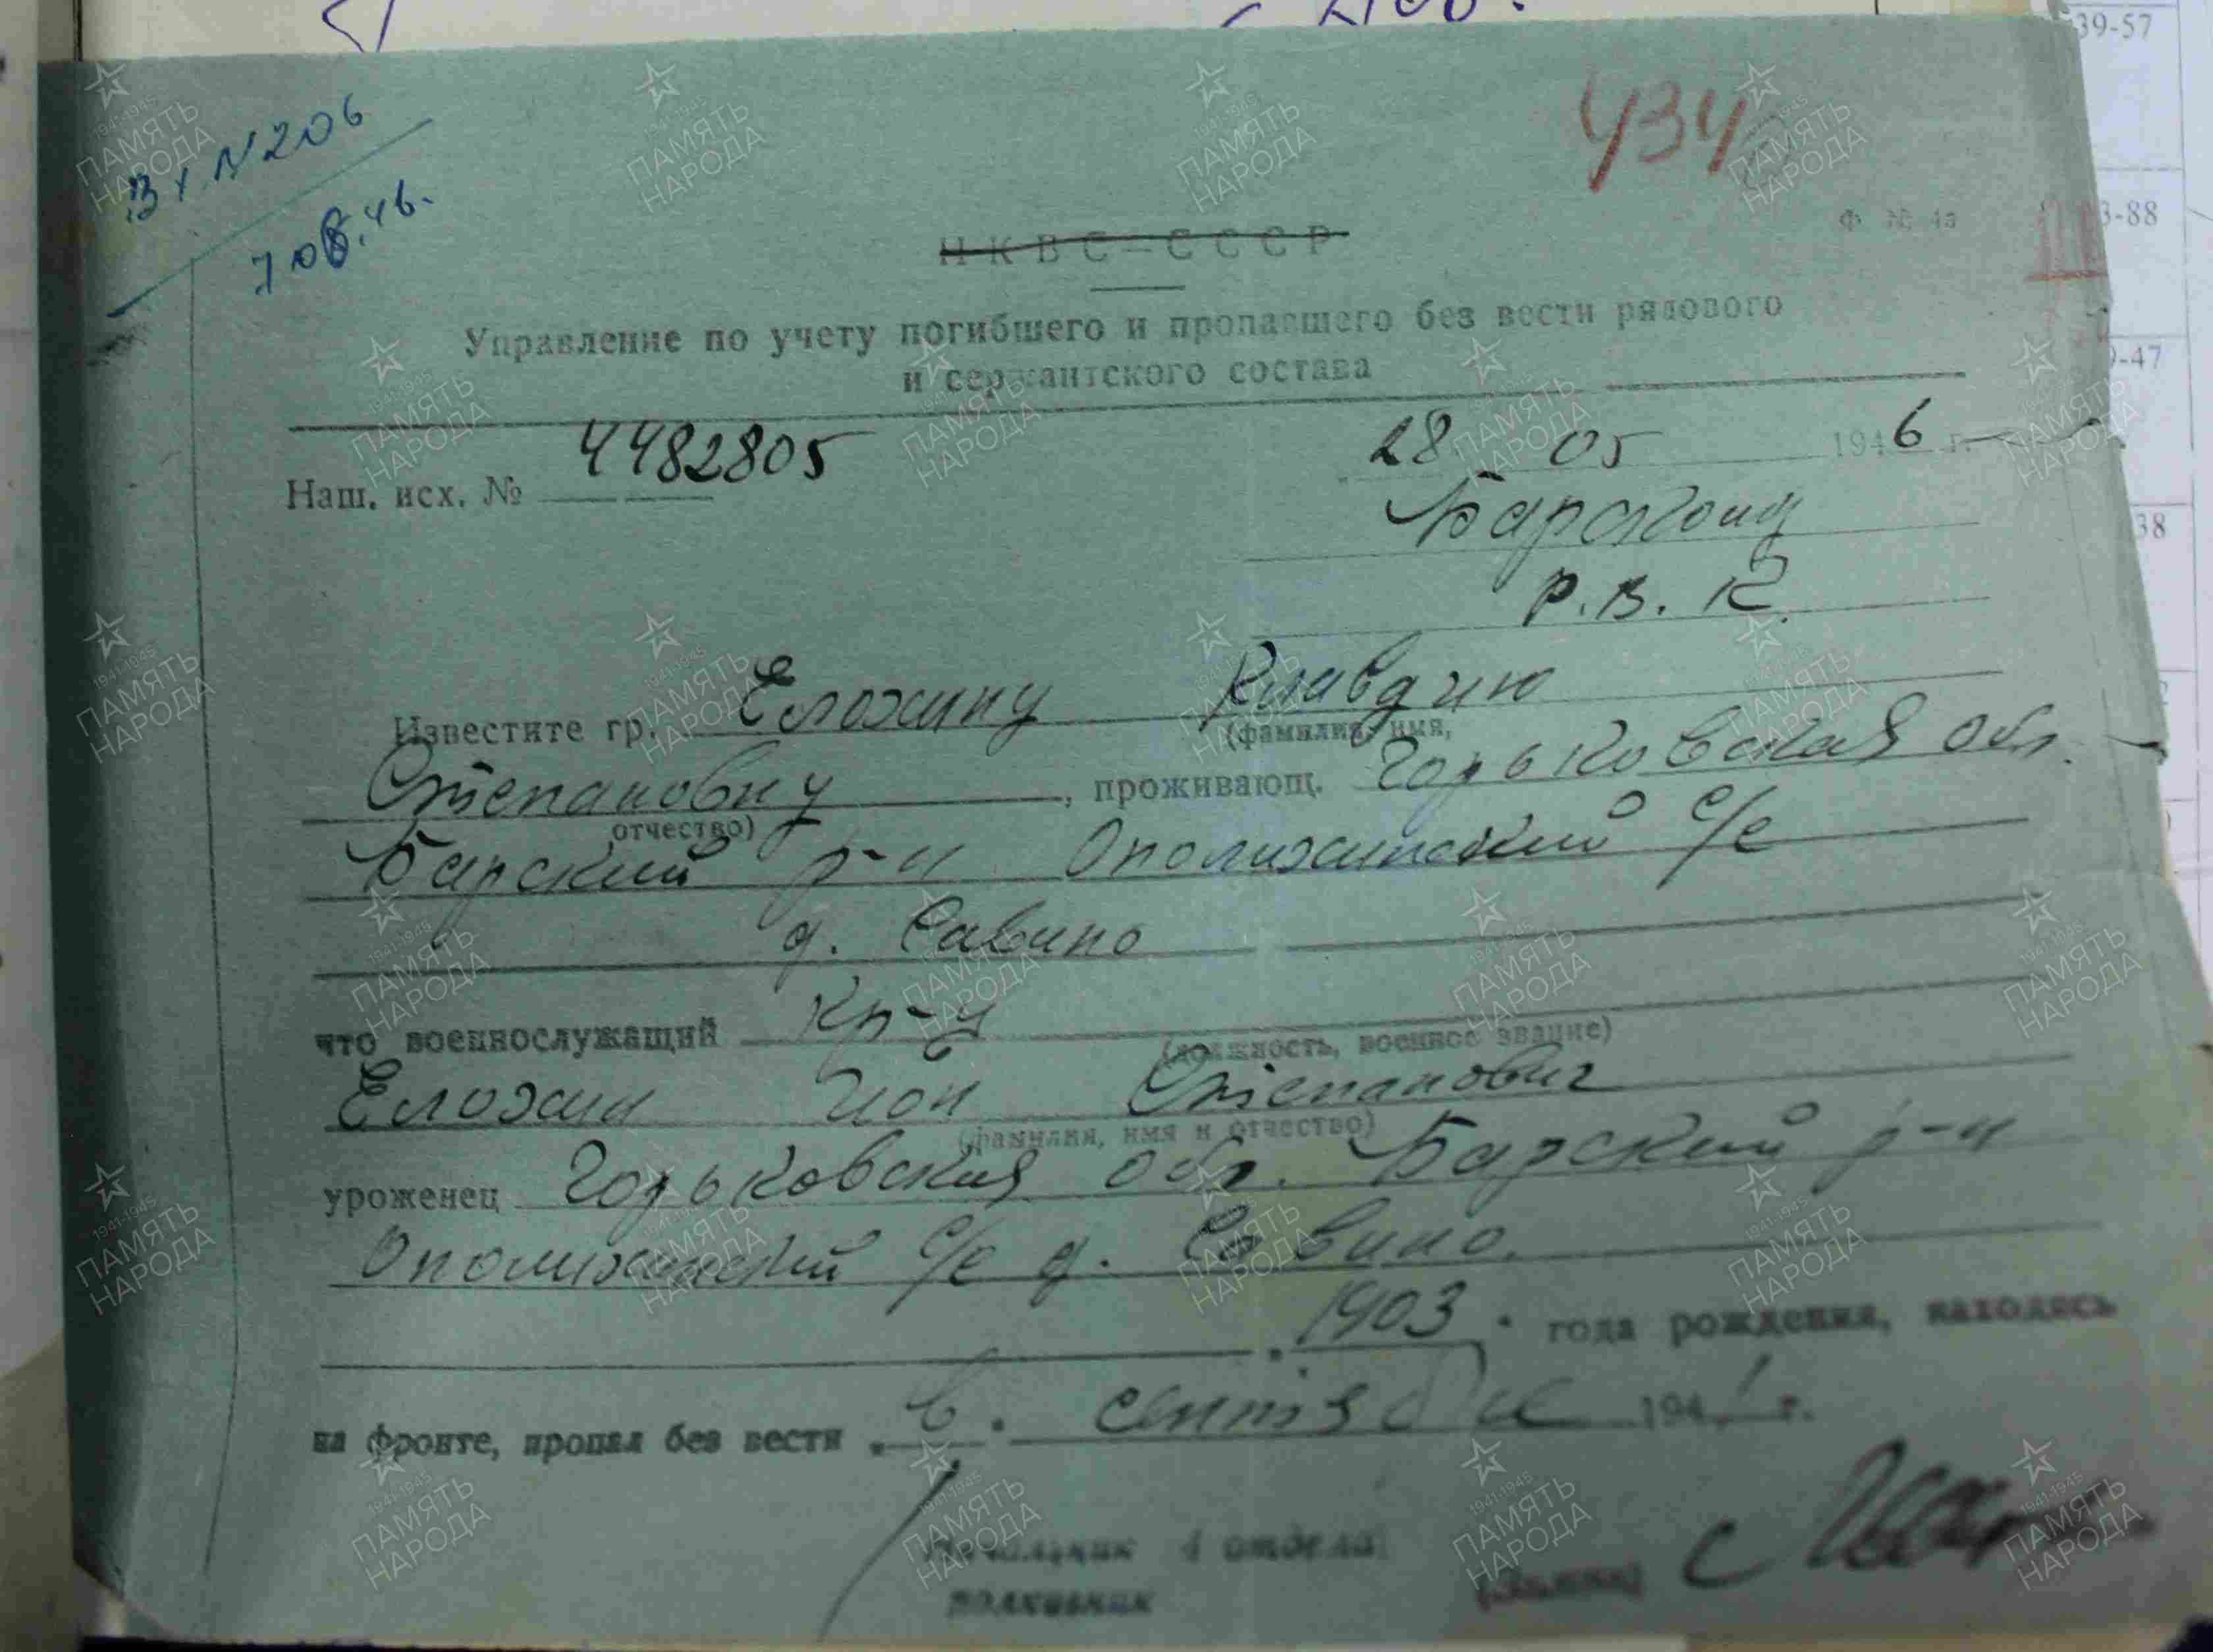 Вх N 206
7 08. 46.
434
НКВС-СССР
Ф № 4а
Управление по учету погибшего и пропавшего без вести рядового
и сержантского состава
Наш. исх. № 4482805
28 05 1946 г.
Р.В.К.
Известите гр. Еложину Клавдию
(фамилия, имя,
Степановну, проживающ. Горьковская обл.
отчество)
Барский р-н Ополихинский с/с
д. Савино
что военнослужащий кр-ц
(должность, военное звание)
Еложин Ион Степанович
(фамилия, имя и отчество)
уроженец Горьковская обл. Барский р-н
Ополихинский с/с д. Савино.
1903 года рождения, находясь
на фронте, пропал без вести в сентябре 1941 г.
Начальник 4 отдела
полковник
39-57
3-88
9-47
38
1941-1945
ПАМЯТЬ
НАРОДА